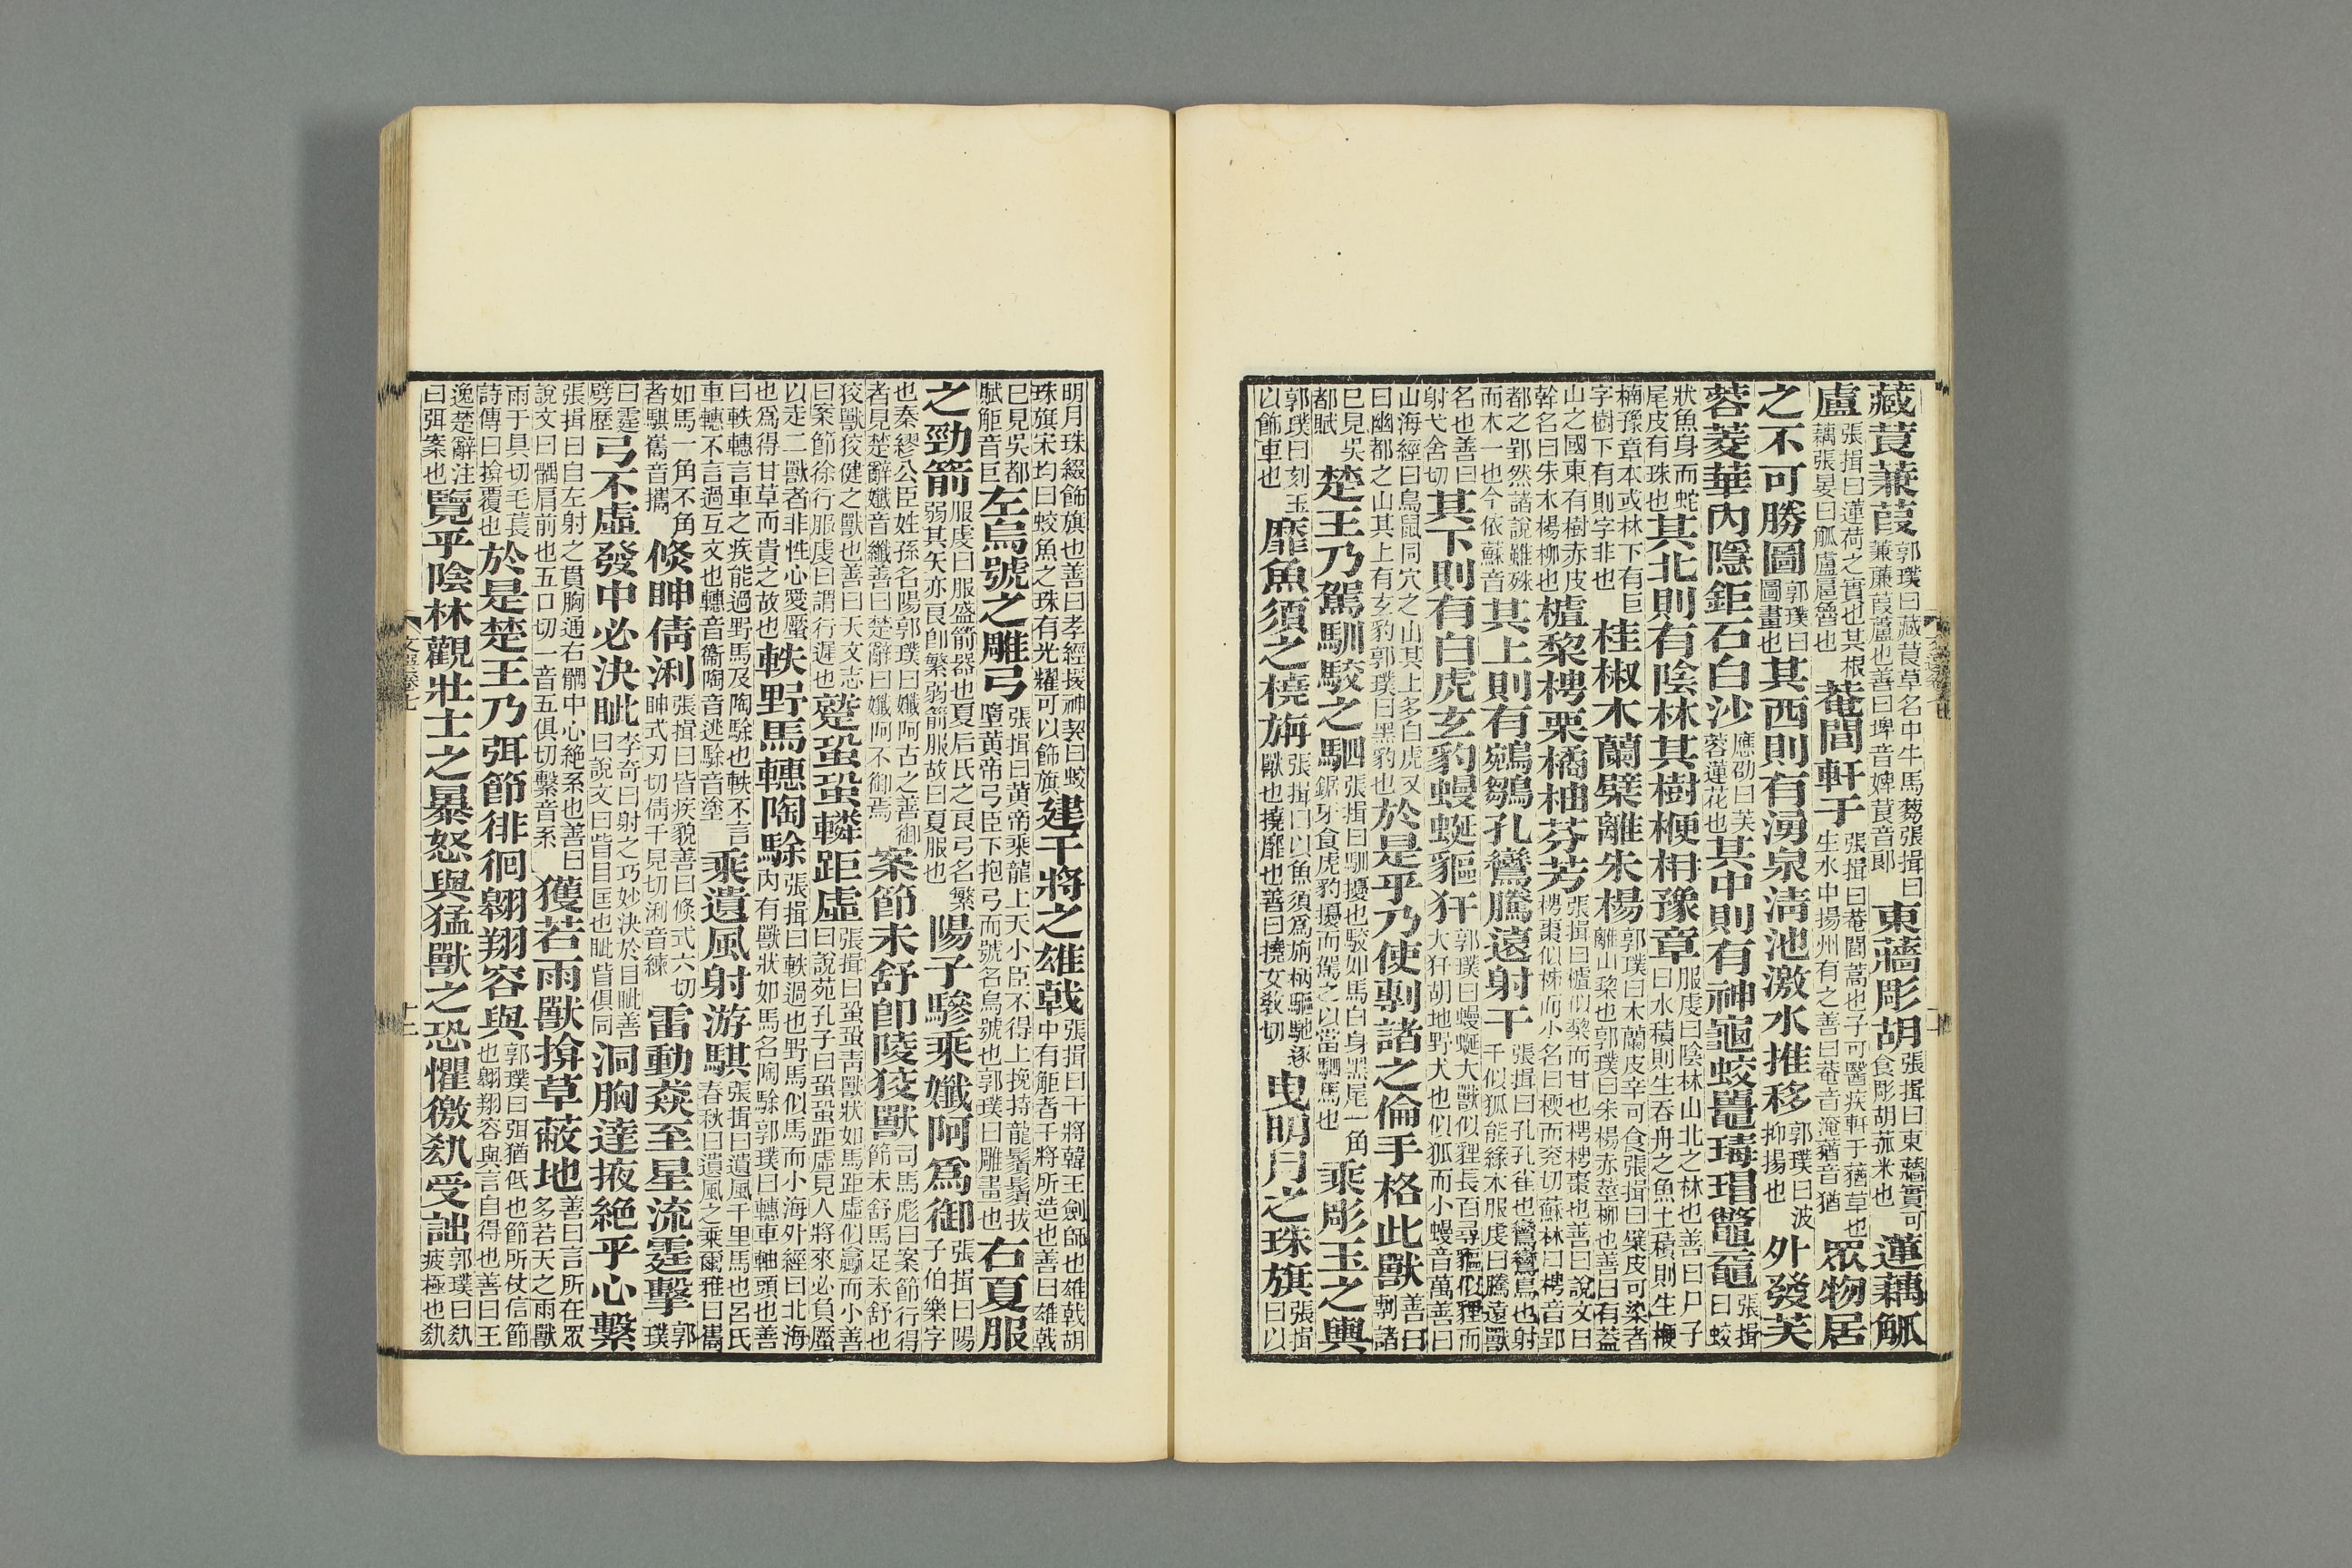 藏莨蒹葭郭璞曰藏莨草名中牛馬芻張揖曰蒹薕葭蘆也善曰埤音婢莨音郞東蘠彫胡張揖曰東蘠實可食彫胡菰米也蓮藕觚
盧張揖曰蓮荷之實也其根藕張晏曰觚盧扈魯也菴閭軒于張揖曰菴閭蒿也子可醫疾軒于蕕草也生水中揚州有之善曰菴音淹蕕音猶眾物居
之不可勝圖郭璞曰圖畫也其西則有湧泉淸池激水推移郭璞曰波抑揚也外發芙
蓉菱華內隱鉅石白沙應劭曰芙蓉蓮花也其中則有神龜蛟鼉瑇瑁鼈黿張揖曰蛟
狀魚身而蛇尾皮有珠也其北則有陰林其樹楩柟豫章服虔曰陰林山北之林也善曰尸子曰水積則生吞舟之魚土積則生楩
楠豫章本或林下有巨字樹下有則字非也桂椒木蘭檗離朱楊郭璞曰木蘭皮辛可食張揖曰檗皮可染者離山棃也郭璞曰朱楊赤莖柳也善曰有蓋
山之國東有樹赤皮幹名曰朱木楊柳也樝棃梬栗橘柚芬芳張揖曰樝似棃而甘也梬梬棗也善曰說文曰梬棗似柹而小名曰㮕而兖切蘇林曰梬音郢
都之郢然諸說雖殊而木一也今依蘇音其上則有鵷鶵孔鸞騰遠射干張揖曰孔孔雀也鸞鸞鳥也射干似狐能緣木服虔曰騰遠獸
名也善曰射弋舍切其下則有白虎玄豹蟃蜒貙犴郭璞曰蟃蜒大獸似貍長百尋貙似貍而大犴胡地野犬也似狐而小蟃音萬善曰
山海經曰鳥鼠同穴之山其上多白虎又曰幽都之山其上有玄豹郭璞曰黑豹也於是乎乃使剸諸之倫手格此獸善曰剸諸
巳見吳都賦楚王乃駕馴駮之駟張揖曰馴擾也駮如馬白身黑尾一角鋸牙食虎豹擾而駕之以當駟馬也乘彫玉之輿
郭璞曰刻玉以飾車也靡魚須之橈旃張揖曰以魚須爲旃柄驅馳逐獸也撓靡也善曰撓女敎切曳明月之珠旗張揖曰以
明月珠綴飾旗也善曰孝經援神契曰蛟珠旗宋均曰蛟魚之珠有光耀可以飾旗建干將之雄戟張揖曰干將韓王劍師也雄戟胡中有鮔者干將所造也善曰雄戟
巳見吳都賦鮔音巨左烏號之雕弓張揖曰黃帝乘龍上天小臣不得上挽持龍鬚鬚拔墮黃帝弓臣下抱弓而號名烏號也郭璞曰雕畫也右夏服
之勁箭服虔曰服盛箭器也夏后氏之良弓名繁弱其矢亦良卽繁弱箭服故曰夏服也陽子驂乘孅阿爲御張揖曰陽子伯樂字
也秦繆公臣姓孫名陽郭璞曰孅阿古之善御者見楚辭孅音纖善曰楚辭曰孅阿不御焉案節未舒卽陵狡獸司馬彪曰案節行得節未舒馬足未舒也
狡獸狡健之獸也善曰天文志曰案節徐行服虔曰謂行遲也蹵蛩蛩轔距虛張揖曰蛩蛩靑獸狀如馬距虛似驘而小善曰說苑孔子曰蛩蛩距虛見人將來必負蟨
以走二獸者非性心愛蟨也爲得甘草而貴之故也軼野馬轊陶駼張揖曰軼過也野馬似馬而小海外經曰北海內有獸狀如馬名陶駼郭璞曰轊車軸頭也善
曰軼轊言車之疾能過野馬及陶駼也軼不言車轊不言過互文也轊音衞陶音逃駼音塗乘遺風射游騏張揖曰遺風千里馬也呂氏春秋曰遺風之乘爾雅曰巂
如馬一角不角者騏巂音攜倏眒倩浰張揖曰皆疾貌善曰倏式六切眒式刃切倩千見切浰音練雷動猋至星流霆擊郭璞
曰霆劈歷弓不虛發中必決眦李奇曰射之巧妙決於目眦善曰說文曰眥目匡也眦眥俱同洞胸達掖絶乎心繫
張揖曰自左射之貫胸通右髃中心絶系也善曰說文曰髃肩前也五口切一音五俱切繫音系獲若雨獸揜草蔽地善曰言所在眾多若天之雨獸
雨于具切毛萇詩傳曰揜覆也於是楚王乃弭節徘徊翱翔容與郭璞曰弭猶低也節所仗信節也翱翔容與言自得也善曰王
逸楚辭注曰弭案也覽乎陰林觀壯士之暴怒與猛獸之恐懼徼𠜾受詘郭璞曰𠜾疲極也𠜾
文選卷七
十二